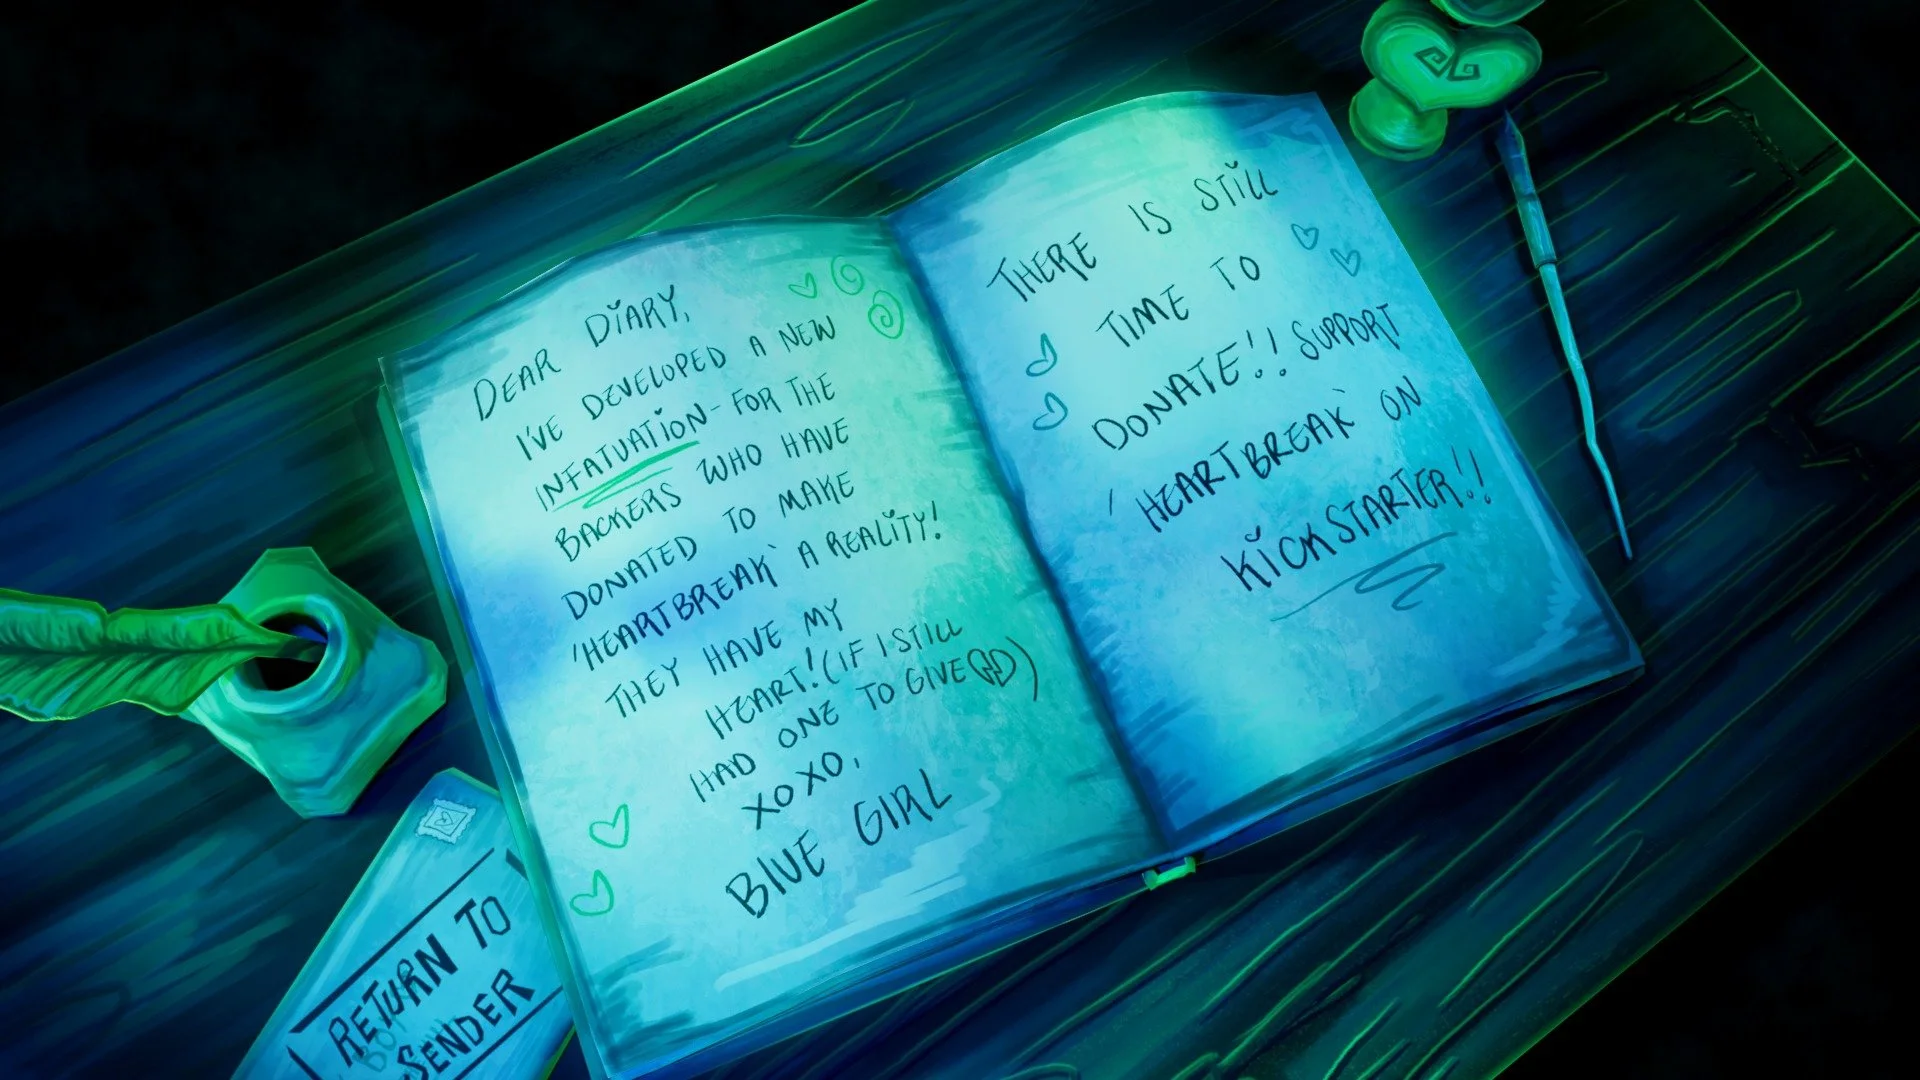 DEAR DIARY,
I'VE DEVELOPED A NEW
INFATUATION - FOR THE
BACKERS WHO HAVE
DONATED TO MAKE
'HEARTBREAK' A REALITY!
THEY HAVE MY
HEART! (IF I STILL
HAD ONE TO GIVE)
XOXO,
BLUE GIRL
THERE IS STILL
TIME TO
DONATE!! SUPPORT
'HEARTBREAK' ON
KICKSTARTER!!
RETURN TO
SENDER